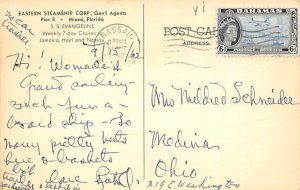 EASTERN STEAMSHIP CORP., Gen'l Agents
Pier 3 • Miami, Florida
S. S. EVANGELINE
Weekly 7-day Cruises to
Jamaica, Haiti and Nassau
NASSAU
POST CARD
ADDRESS
BAHAMAS
6d
Hi! Wonderful
Grand sailing -
such fun a-
board ship - So
many pretty hats
here & baskets
love Ruth
Mrs Mildred Schneider
Medina
Ohio
219 E Washington